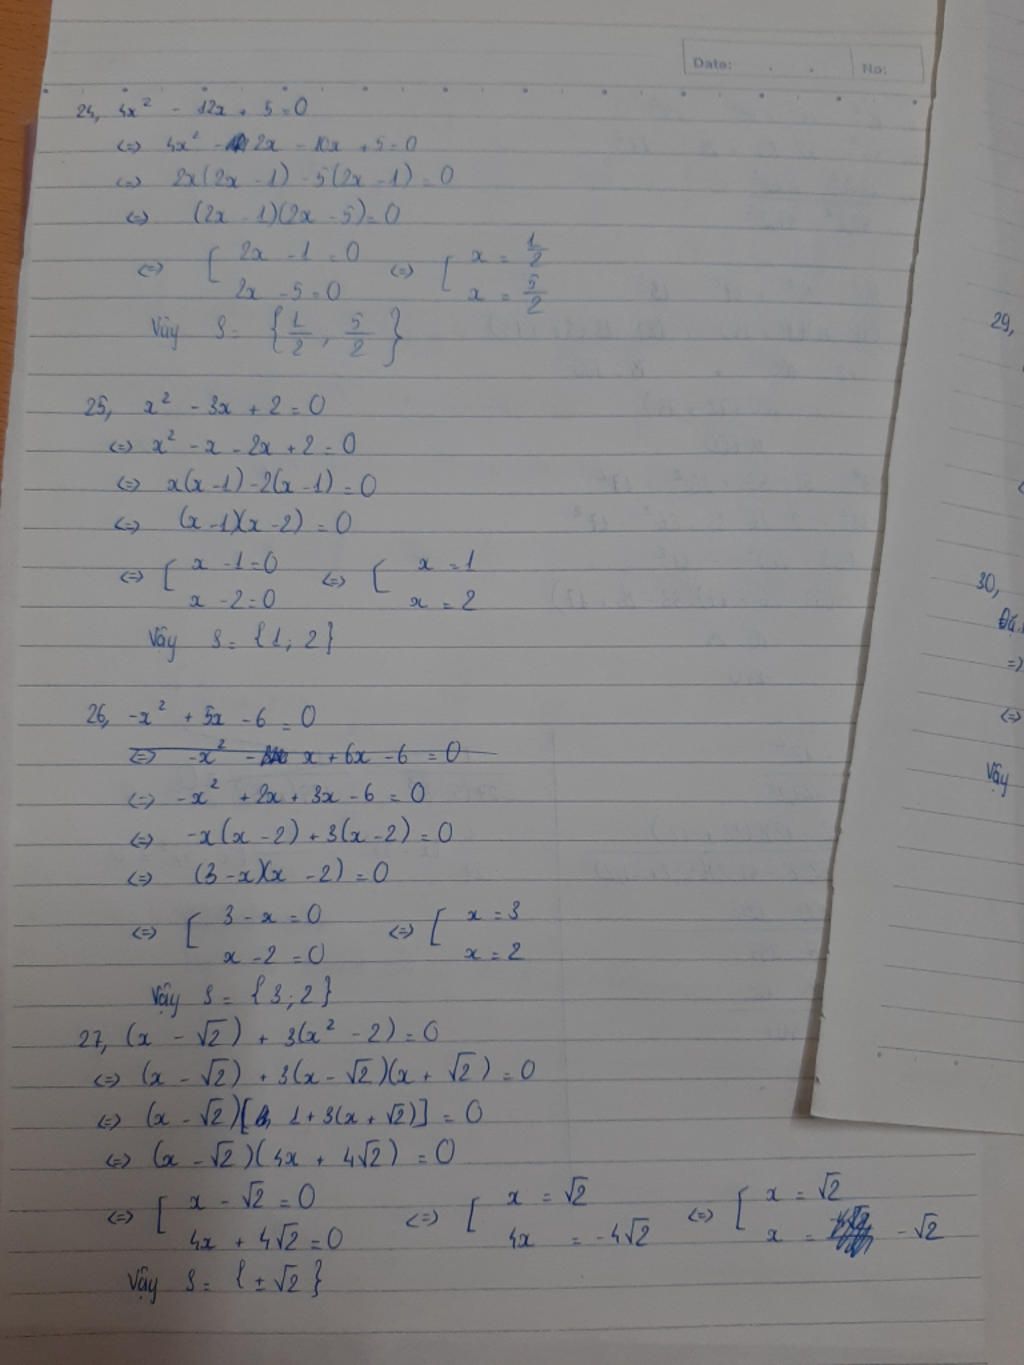 Date: . . No:
24, 4x² - 12x + 5 = 0
<=> 4x² - 2x - 10x + 5 = 0
<=> 2x(2x - 1) - 5(2x - 1) = 0
<=> (2x - 1)(2x - 5) = 0
<=> [ 2x - 1 = 0 <=> [ x = 1/2
2x - 5 = 0 x = 5/2
Vậy S = {1/2, 5/2}
25, x² - 3x + 2 = 0
<=> x² - x - 2x + 2 = 0
<=> x(x - 1) - 2(x - 1) = 0
<=> (x - 1)(x - 2) = 0
<=> [ x - 1 = 0 <=> [ x = 1
x - 2 = 0 x = 2
Vậy S = {1; 2}
26, -x² + 5x - 6 = 0
<=> -x² - x + 6x - 6 = 0
<=> -x² + 2x + 3x - 6 = 0
<=> -x(x - 2) + 3(x - 2) = 0
<=> (3 - x)(x - 2) = 0
<=> [ 3 - x = 0 <=> [ x = 3
x - 2 = 0 x = 2
Vậy S = {3; 2}
27, (x - √2) + 3(x² - 2) = 0
<=> (x - √2) + 3(x - √2)(x + √2) = 0
<=> (x - √2)[1 + 3(x + √2)] = 0
<=> (x - √2)(4x + 4√2) = 0
<=> [ x - √2 = 0 <=> [ x = √2 <=> [ x = √2
4x + 4√2 = 0 4x = -4√2 x = -√2
Vậy S = {±√2}
29,
30,
=>
<=>
Vậy